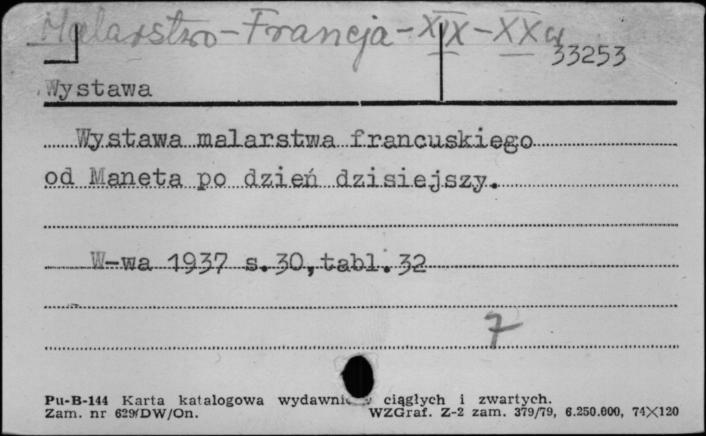 Malarstwo-Francja-XIX-XX w
33253
Wystawa
Wystawa malarstwa francuskiego
od Maneta po dzień dzisiejszy.
W-wa 1937 s.30,tabl.32
7
Pu-B-144 Karta katalogowa ciągłych i zwartych.
Zam. nr 629/DW/On. WZGraf. Z-2 zam. 379/79, 6.250.000, 74×120